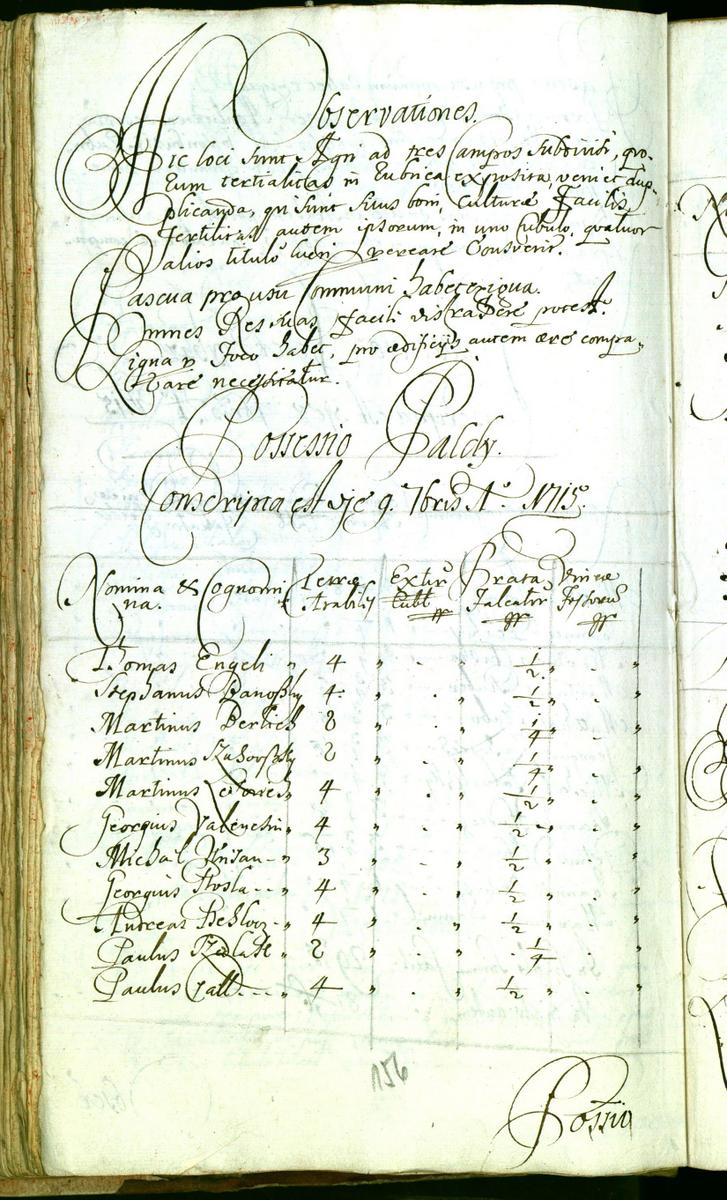 Observationes.
Hic loci sunt Agri ad tres Campos Subdivisi, quo-
Eum tertialitas in Rubrica exposita, veniet dup-
plicanda, qri sunt sius boni, Culturæ Facilis,
Fertilitas autem ipsorum, in uno Cubulo, quatuor
alios titulo lucri procreare Consvevit.
Pascua pro usu Communi habet exigua.
Omnes Res suas facili distrahere potest.
Ligna p. Foco habet, pro ædificijs autem ære compa-
rare necessitatur.
Possessio Paldy.
Conscripta est die 9. 7bris Aº. 1715.
Nomina & Cognomi- Terræ Extir Prata Vineæ
na. Arabiles Cubl Falcator Fossorum
Thomas Engeli " 4 " . " ½ " . "
Stephanus Danoffsky 4 " . " ½ " . "
Martinus 8 " . " ¼ " . "
Martinus 2 " . " ¼ " . "
Martinus 4 " . " ½ " . "
Georgius Valenchin " 4 " . " ½ " . "
Michael " 3 " . " ½ " . "
Georgius " 4 " . " ½ " . "
Andreas " 4 " . " ½ " . "
Paulus 2 " . " ¼ " . "
Paulus " 4 " . " ½ " . "
156
Possio